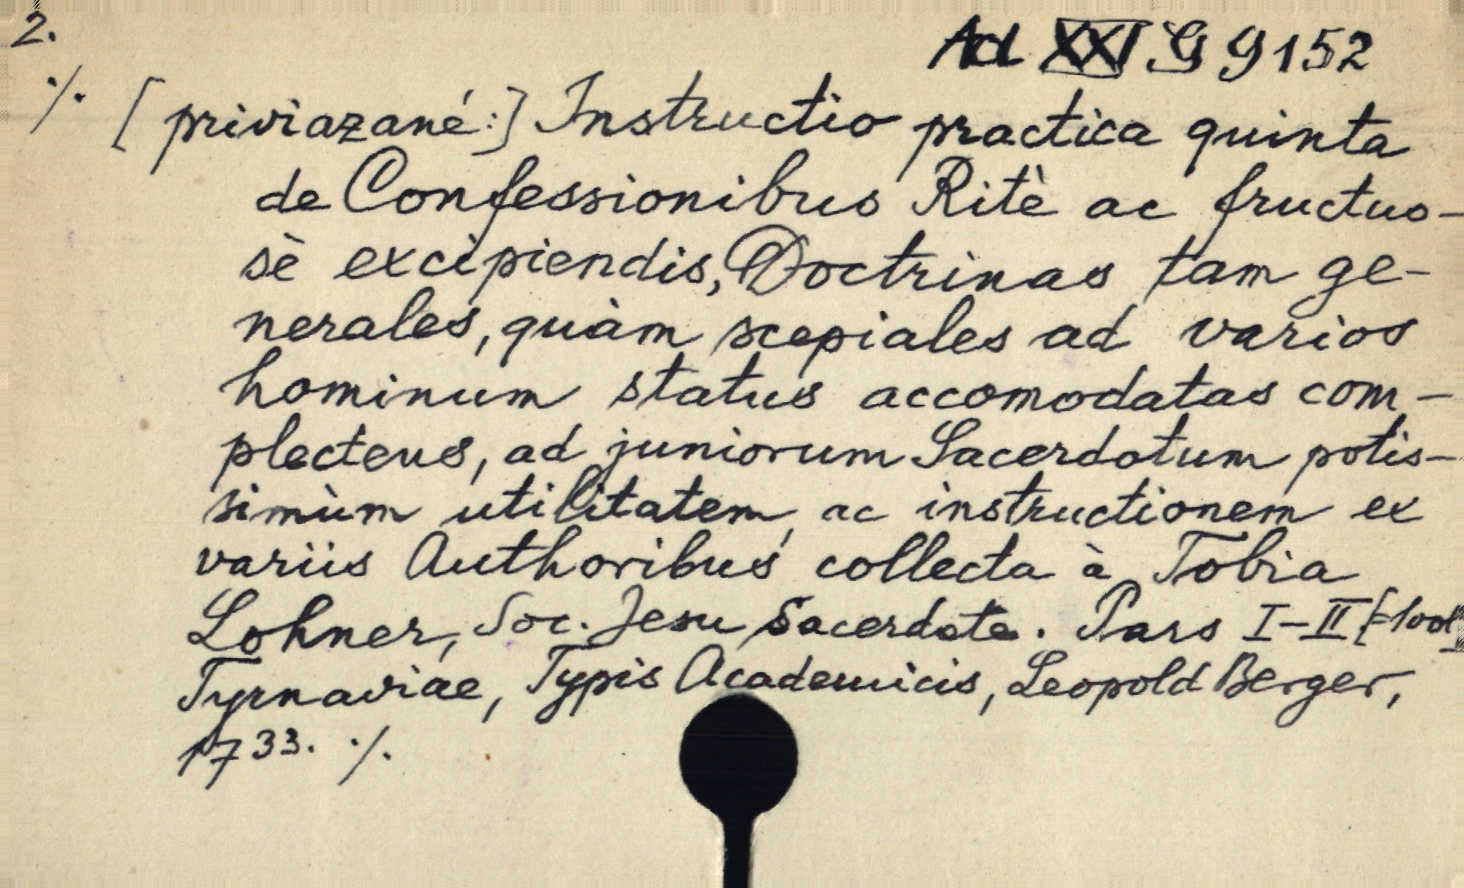 2.
Ad XXI G 9152
·/. [priviazané:] Instructio practica quinta
de Confessionibus Ritè ac fructuo-
sè excipiendis, Doctrinas tam ge-
nerales, quàm scepiales ad varios
hominum status accomodatas com-
plectens, ad juniorum Sacerdotum potis-
simùm utilitatem, ac instructionem ex
variis Authoribus collecta à Tobia
Lohner, Soc. Jesu Sacerdote. Pars I-II
Tyrnaviae, Typis Academicis, Leopold Berger,
1733. ·/.